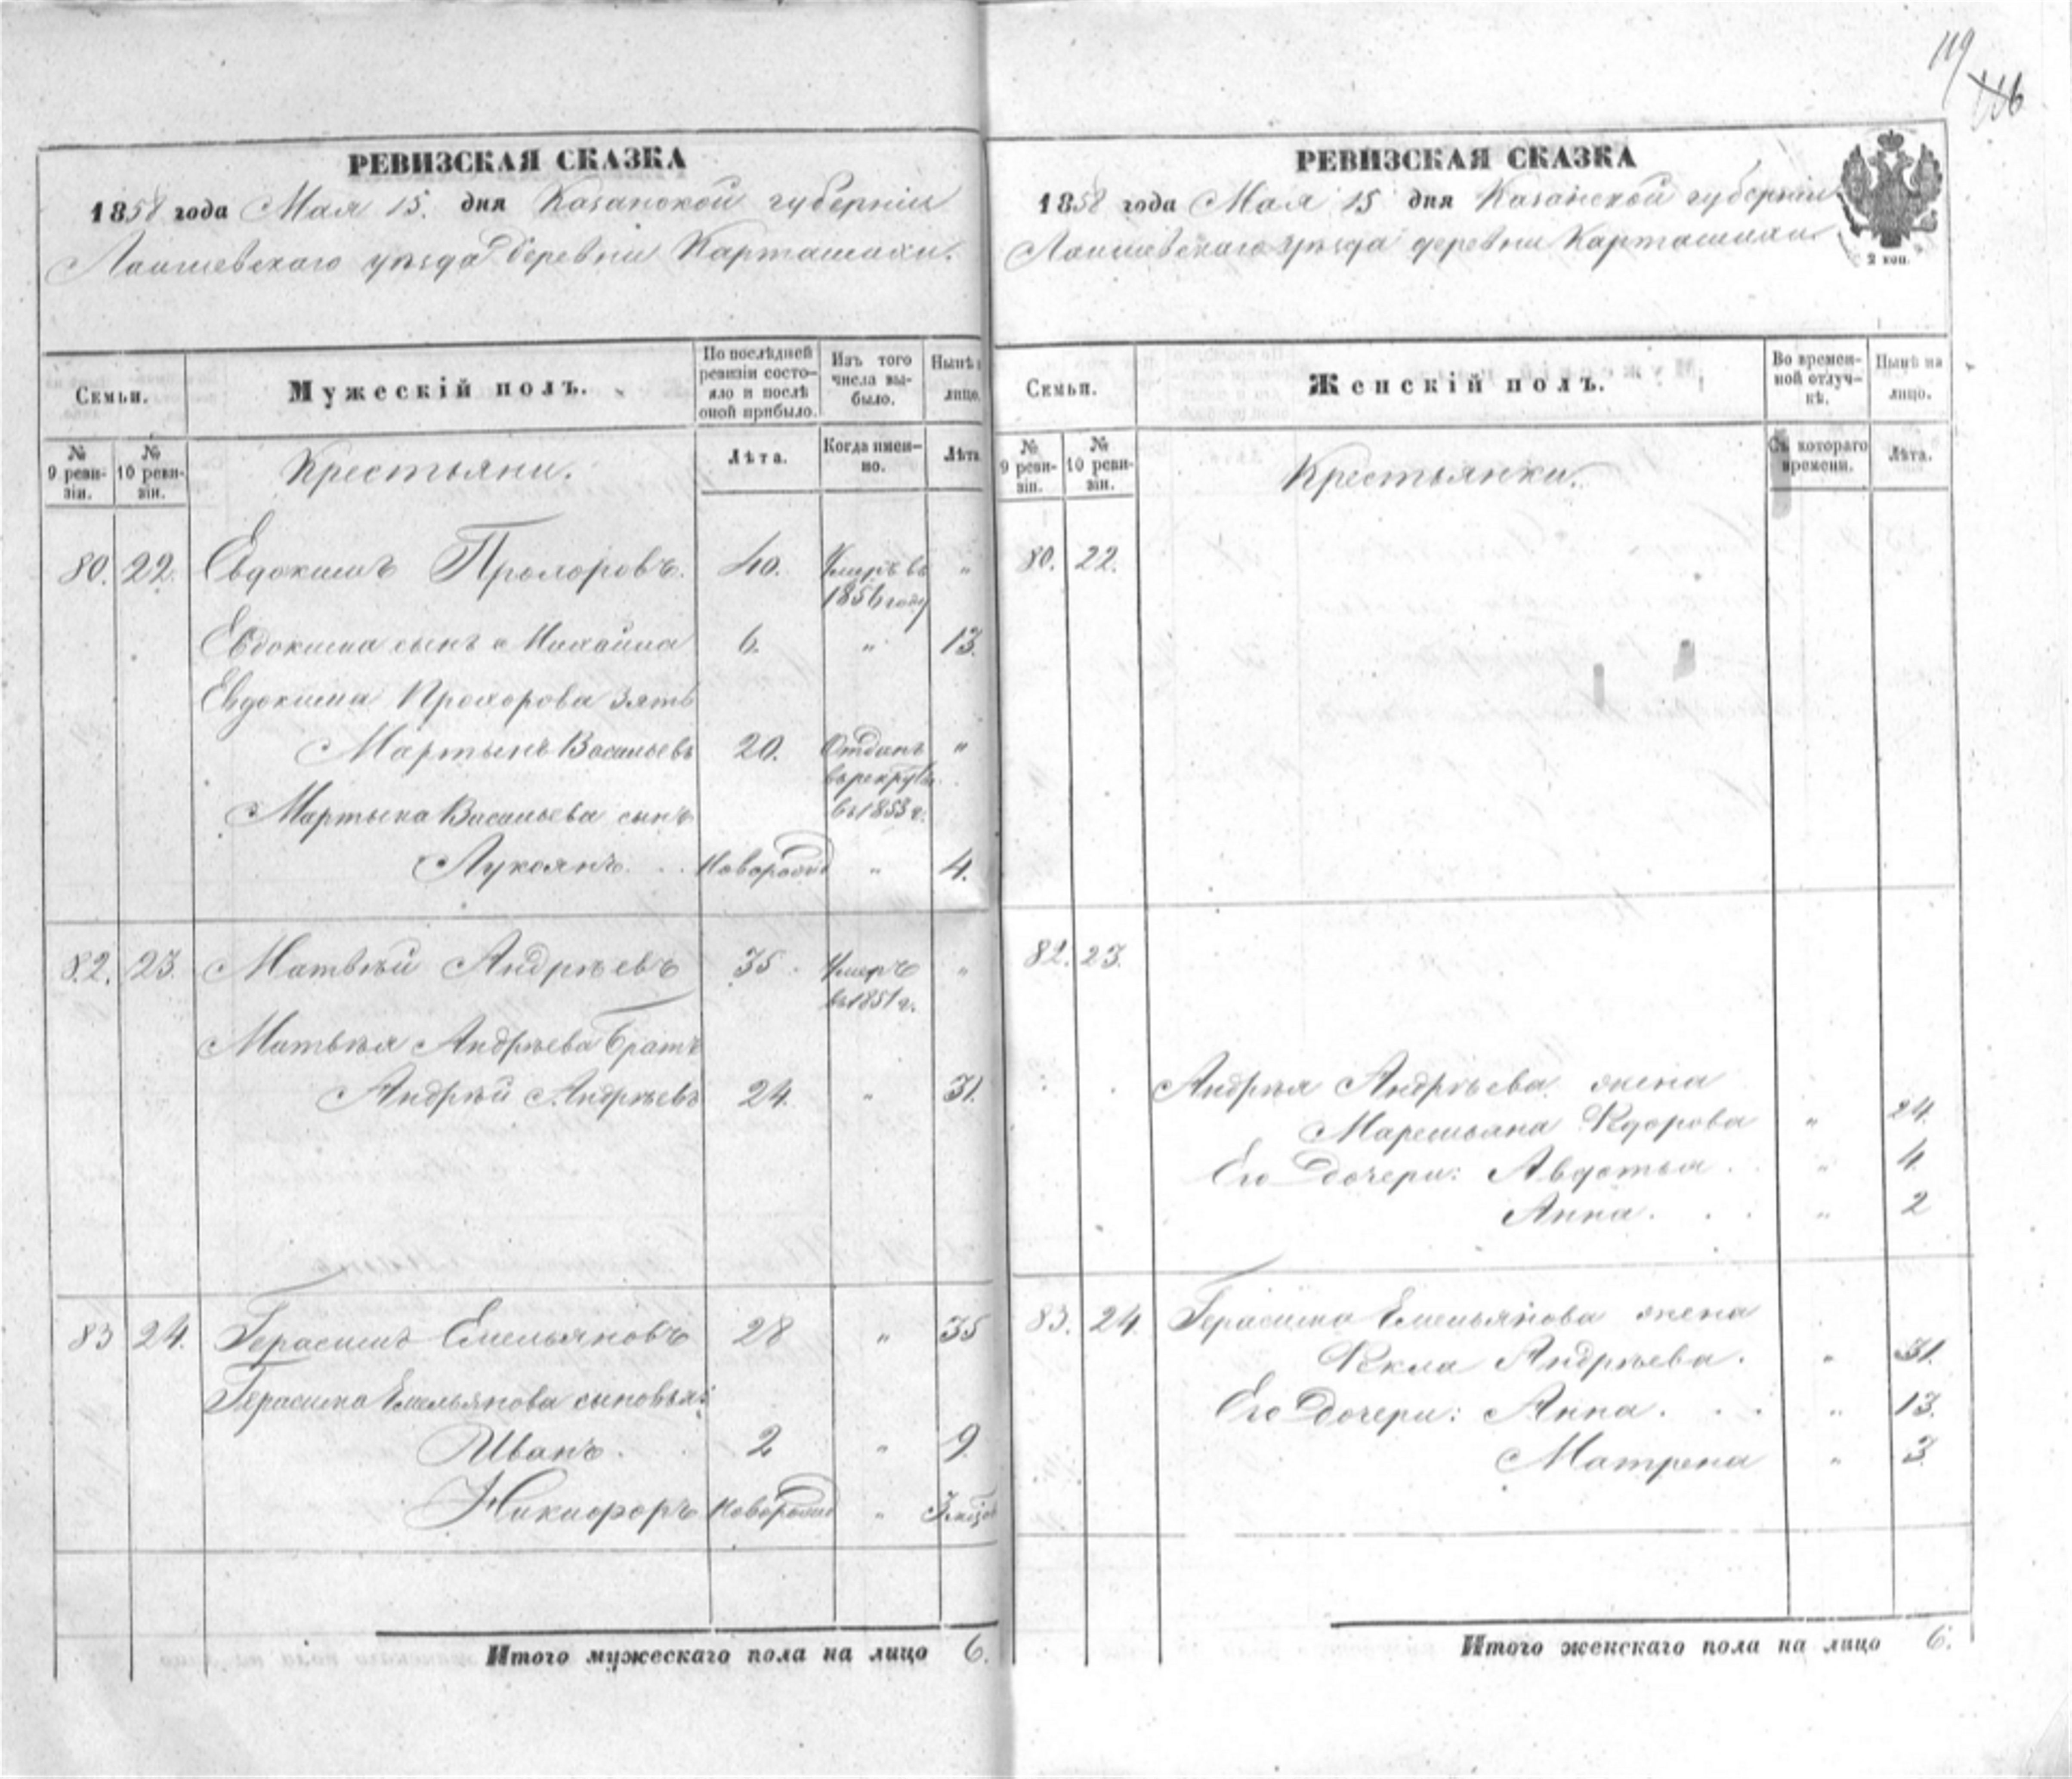 119
116
РЕВИЗСКАЯ СКАЗКА
1858 года Мая 15. дня Казанской губерніи
Лаишевскаго уѣзда деревни Карташихи.
Семьи.
Мужескій полъ.
По послѣдней ревизіи состояло и послѣ оной прибыло.
Изъ того числа выбыло.
Нынѣ на лицо.
№ 9 ревизіи.
№ 10 ревизіи.
Крестьяни.
Лѣта.
Когда именно.
Лѣта
80. 22. Евдокимъ Прохоровъ. 40. Умеръ въ "
1856 году
Евдокима сынъ Михайла 6. " 13.
Евдокима Прохорова зять
Мартынъ Васильевъ 20. Отданъ "
въ рекруты
Мартына Васильева сынъ въ 1853 г.
Лукоянъ. . . Новорожд " 4.
82. 23. Матвѣй Андрѣевъ 35. Умеръ "
въ 1851 г.
Матвѣя Андрѣева братъ
Андрѣй Андрѣевъ 24. " 31.
83 24. Герасимъ Емельяновъ 28 " 35
Герасима Емельянова сыновья:
Иванъ. 2 " 9.
Никифоръ Новорожд "
Итого мужескаго пола на лицо 6.
РЕВИЗСКАЯ СКАЗКА
1858 года Мая 15 дня Казанской губерніи
Лаишевскаго уѣзда деревни Карташихи.
2 коп.
Семьи.
Женскій полъ.
Во временной отлучкѣ.
Нынѣ на лицо.
№ 9 ревизіи.
№ 10 ревизіи.
Крестьянки.
Съ котораго времени.
Лѣта.
80. 22.
82. 23.
Андрѣя Андрѣева жена
Маремьяна Ѳдорова " 24.
Его дочери: Авдотья . . " 4.
Анна. . . " 2
83. 24. Герасима Емельянова жена
Ѳкла Андрѣева. " 31.
Его дочери: Анна. . . " 13.
Матрена " 3.
Итого женскаго пола на лицо 6.